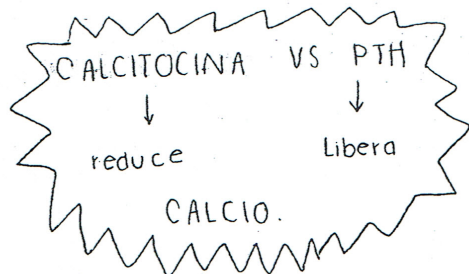 CALCITOCINA VS PTH
↓ ↓
reduce Libera
CALCIO.